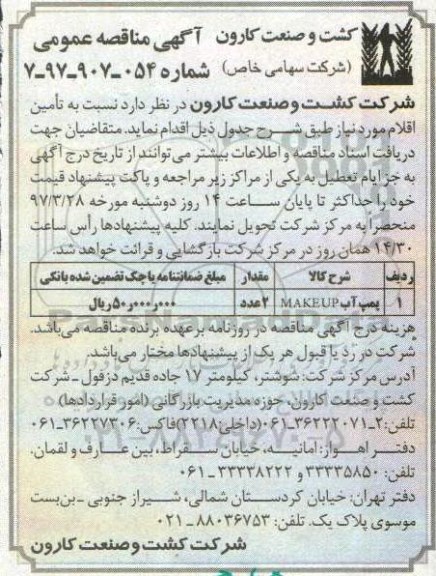 کشت و صنعت کارون
(شرکت سهامی خاص)
آگهی مناقصه عمومی
شماره ۰۵۴-۹۰۷-۹۷-۷
شرکت کشت و صنعت کارون در نظر دارد نسبت به تأمین
اقلام مورد نیاز طبق شرح جدول ذیل اقدام نماید. متقاضیان جهت
دریافت اسناد مناقصه و اطلاعات بیشتر می‌توانند از تاریخ درج آگهی
به جز ایام تعطیل به یکی از مراکز زیر مراجعه و پاکت پیشنهاد قیمت
خود را حداکثر تا پایان ساعت ۱۴ روز دوشنبه مورخه ۹۷/۳/۲۸
منحصراً به مرکز شرکت تحویل نمایند. کلیه پیشنهادها رأس ساعت
۱۴/۳۰ همان روز در مرکز شرکت بازگشایی و قرائت خواهد شد.
ردیف شرح کالا مقدار مبلغ ضمانتنامه یا چک تضمین شده بانکی
۱ پمپ آب MAKEUP ۲عدد ۵۰٫۰۰۰٫۰۰۰ریال
هزینه درج آگهی مناقصه در روزنامه برعهده برنده مناقصه می‌باشد.
شرکت در رد یا قبول هر یک از پیشنهادها مختار می‌باشد.
آدرس مرکز شرکت: شوشتر، کیلومتر ۱۷ جاده قدیم دزفول ـ شرکت
کشت و صنعت کارون، حوزه مدیریت بازرگانی (امور قراردادها)
تلفن: ۲ـ۳۶۲۲۲۰۷۱ـ۰۶۱(داخلی۲۲۱۸)فاکس:۳۶۲۲۷۳۰۶ـ۰۶۱
دفتر اهواز: امانیه، خیابان سقراط، بین عارف و لقمان،
تلفن: ۳۳۳۳۵۸۵۰ و ۳۳۳۳۸۲۲۲ ـ ۰۶۱
دفتر تهران: خیابان کردستان شمالی، شیراز جنوبی ـ بن‌بست
موسوی پلاک یک. تلفن: ۸۸۰۳۶۷۵۳ ـ ۰۲۱
شرکت کشت و صنعت کارون